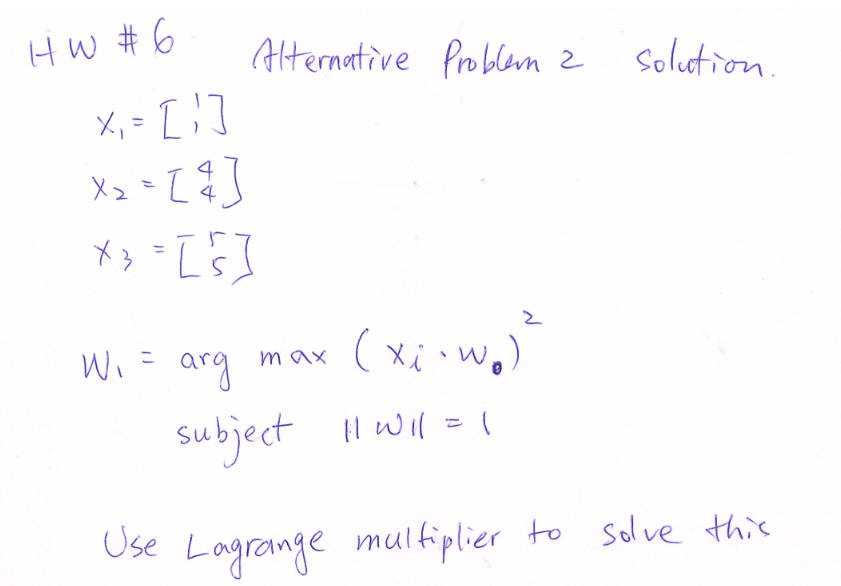 HW #6 Alternative Problem 2 solution.
x₁ = [1 1]
x₂ = [4 4]
x₃ = [5 5]
W₁ = arg max (xᵢ · w₀)²
subject ||w|| = 1
Use Lagrange multiplier to solve this